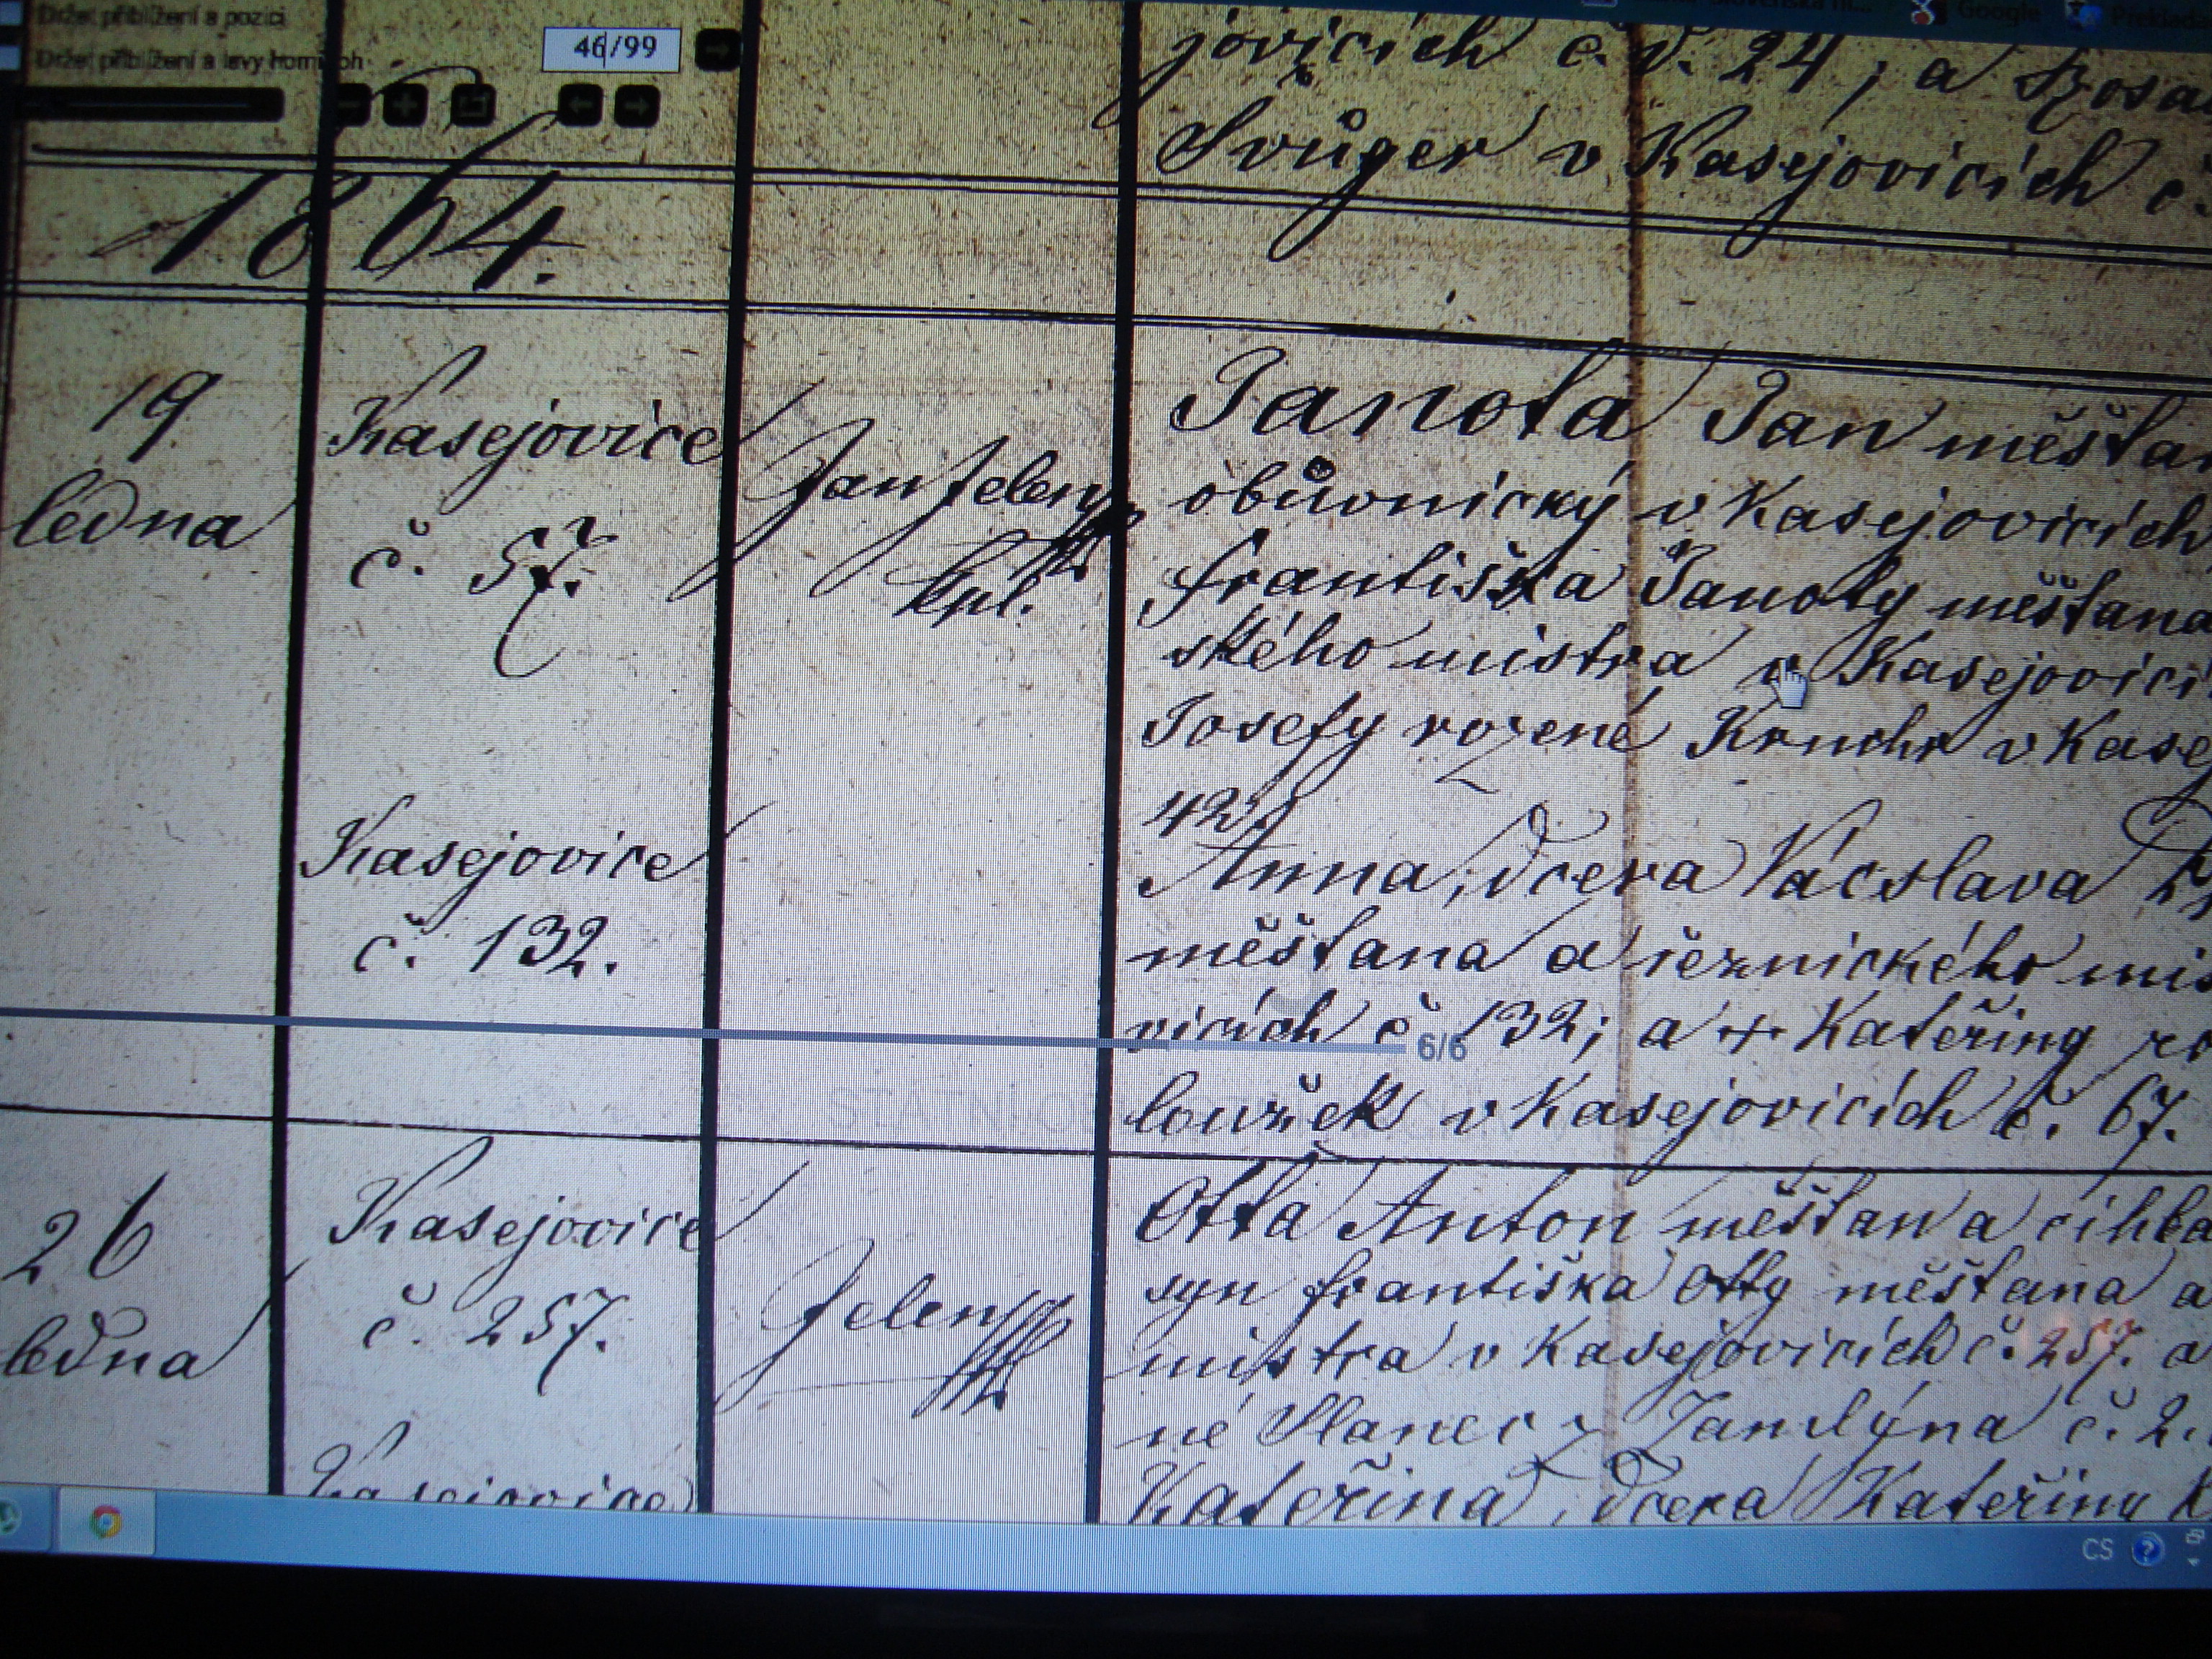 Držet přiblížení a pozici
Držet přiblížení a levý horní roh
46/99
Google
jovicích č. d. 24; a
Švůger v Kasejovicích č.
1864.
19
ledna
Kasejovice
č. 57.
Jan Jelen
kpl.
Janota Jan měšťan
obůvnický v Kasejovicích
Františka Janoty měšťana
ského mistra v Kasejovicí
Josefy rozené v Kasej
42.
Anna, dcera Vácslava
Kasejovice
č. 132.
měšťana a řeznického mis
vicích č 132; a + Kateřiny ro
6/6
loužek v Kasejovicích č. 67.
26
ledna
Kasejovice
č. 257.
Jelen
Otta Anton měšťan a cihla
syn Františka Otty měšťana a
mistra v Kasejovicích č. 257. a
né Slanec z č. 2.
Kasejovice
Kateřina, dcera Kateřiny K
CS